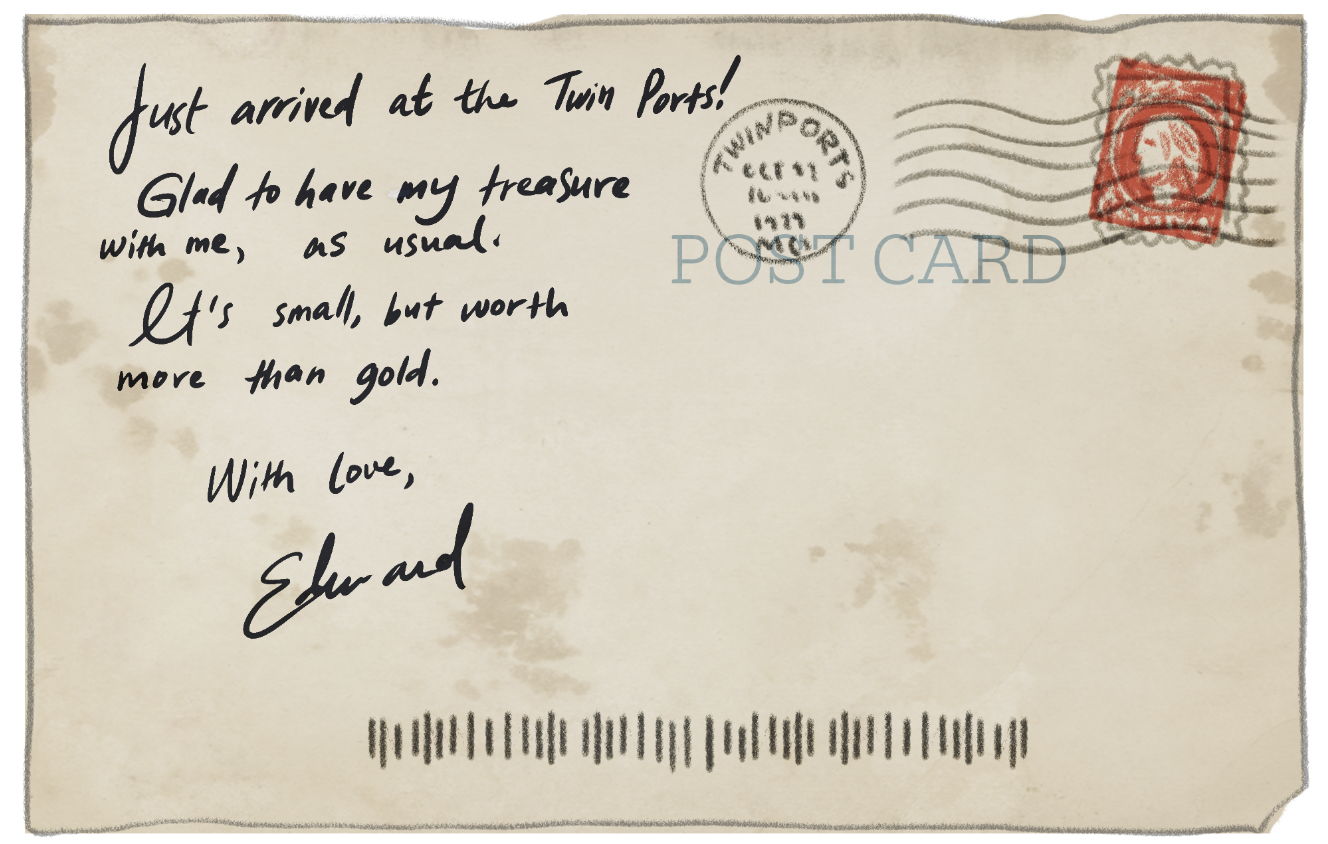 Just arrived at the Twin Ports!
Glad to have my treasure
with me, as usual.
It's small, but worth
more than gold.
With love,
Edward
TWINPORTS
POST CARD